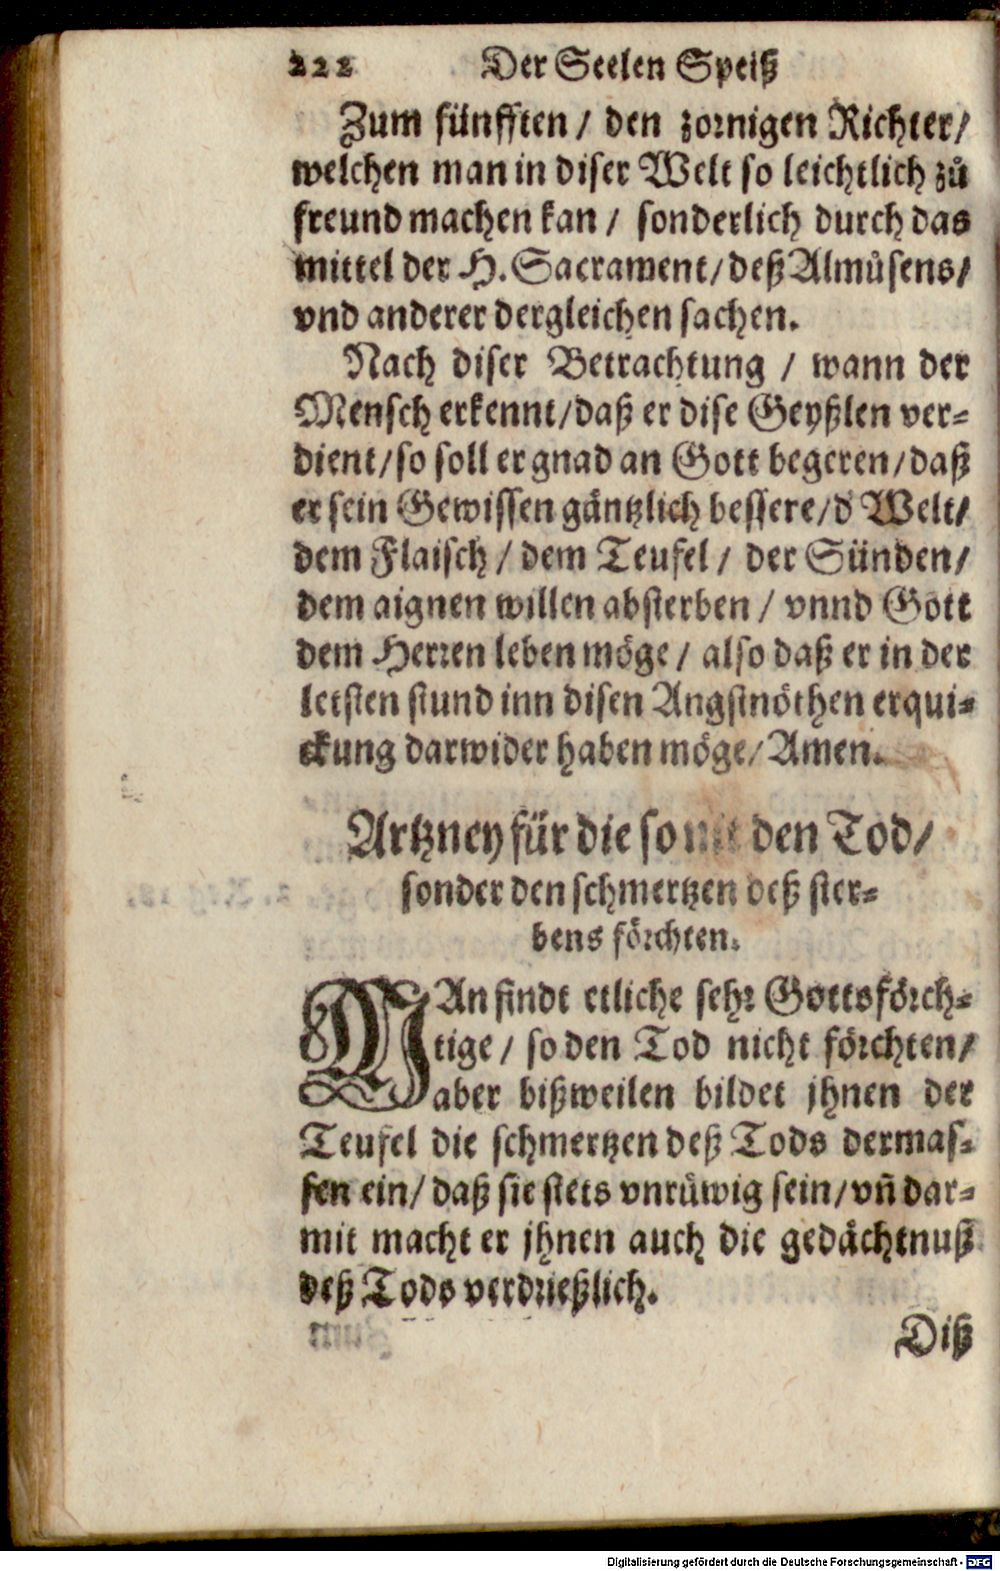 222 Der Seelen Speiß
Zum fünfften / den zornigen Richter/
welchen man in diser Welt so leichtlich zů
freund machen kan / sonderlich durch das
mittel der H. Sacrament/ deß Almůsens/
vnd anderer dergleichen sachen.
Nach diser Betrachtung / wann der
Mensch erkennt/daß er dise Geyßlen ver-
dient/so soll er gnad an Gott begeren/daß
er sein Gewissen gäntzlich bessere/d' Welt/
dem Flaisch / dem Teufel / der Sünden/
dem aignen willen absterben / vnnd Gott
dem Herren leben möge / also daß er in der
letsten stund inn disen Angstnöthen erqui-
ckung darwider haben möge/ Amen.
Artzney für die so nit den Tod/
sonder den schmertzen deß ster-
bens förchten.
MAn findt etliche sehr Gottsförch-
tige / so den Tod nicht förchten/
aber bißweilen bildet jhnen der
Teufel die schmertzen deß Tods dermas-
sen ein/ daß sie stets vnrüwig sein/vñ dar-
mit macht er jhnen auch die gedächtnuß
deß Tods verdrießlich.
Diß
Digitalisierung gefördert durch die Deutsche Forschungsgemeinschaft - DFG